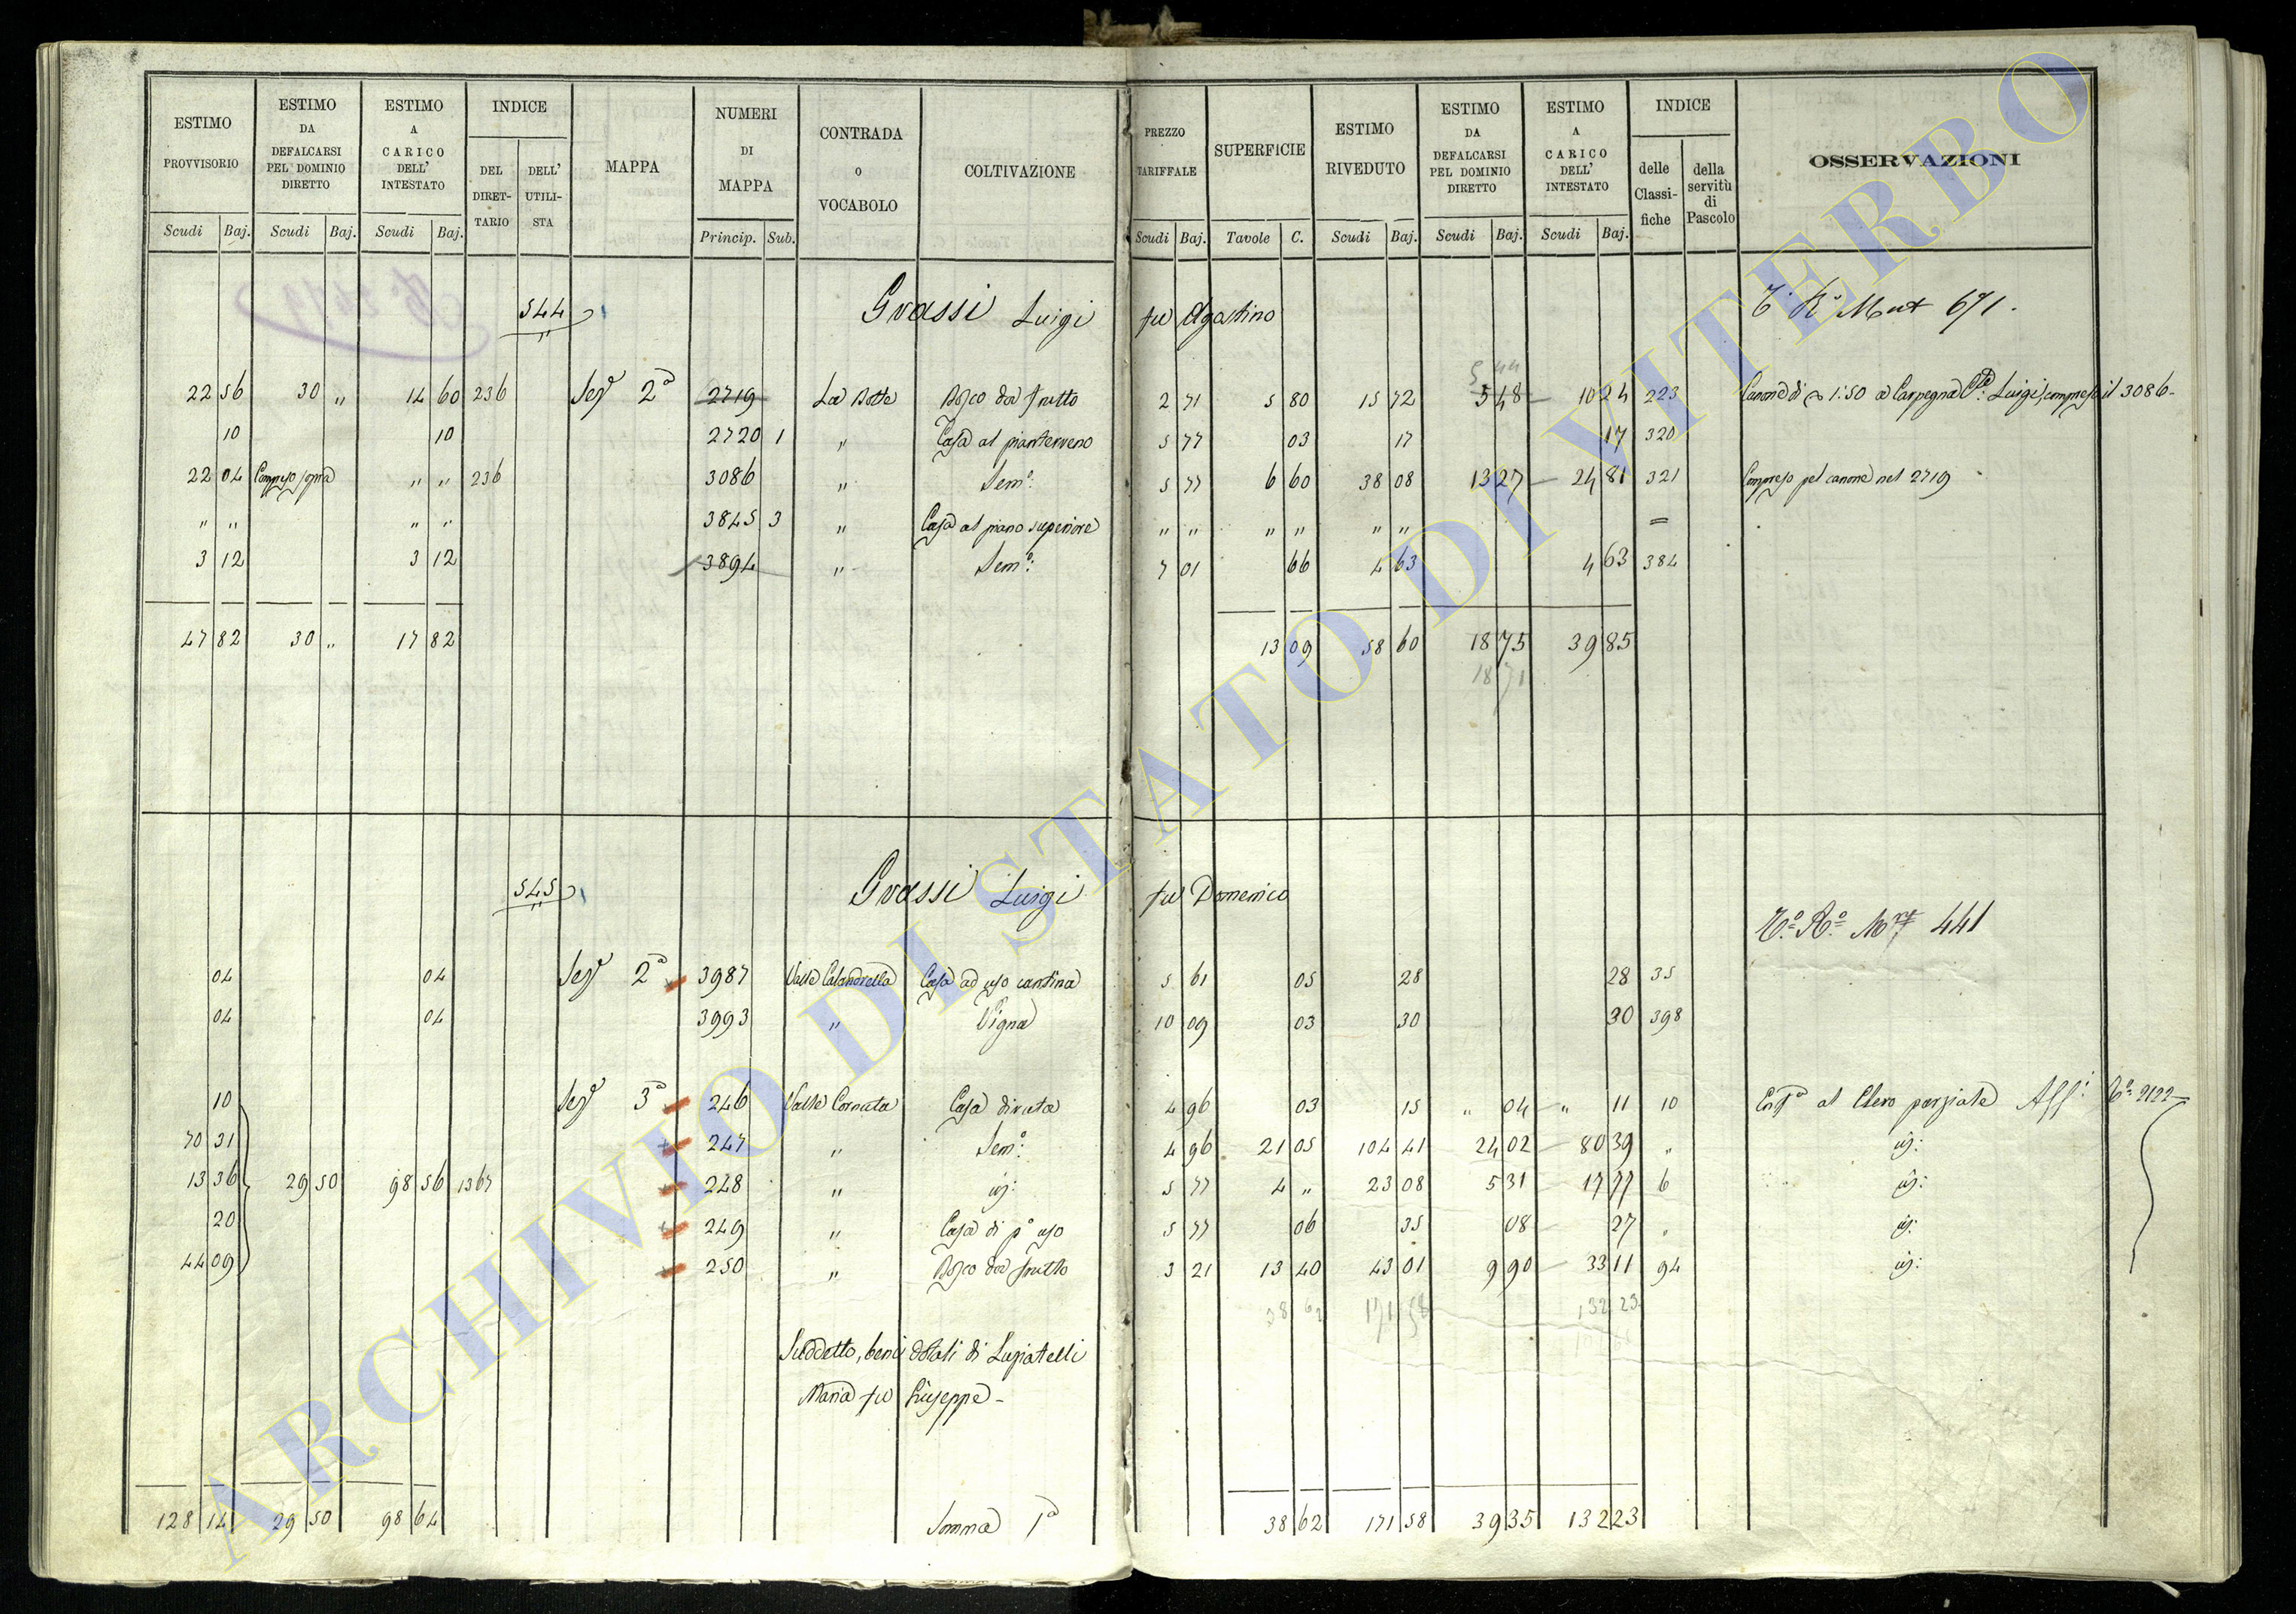 ESTIMO PROVVISORIO | ESTIMO DA DEFALCARSI PEL DOMINIO DIRETTO | ESTIMO A CARICO DELL' INTESTATO | INDICE | MAPPA | NUMERI DI MAPPA | CONTRADA O VOCABOLO | COLTIVAZIONE | PREZZO TARIFFALE | SUPERFICIE | ESTIMO RIVEDUTO | ESTIMO DA DEFALCARSI PEL DOMINIO DIRETTO | ESTIMO A CARICO DELL' INTESTATO | INDICE | OSSERVAZIONI
DEL DIRETTARIO | DELL' UTILISTA | delle Classifiche | della servitù di Pascolo
Scudi | Baj. | Scudi | Baj. | Scudi | Baj. | Princip. | Sub. | Scudi | Baj. | Tavole | C. | Scudi | Baj. | Scudi | Baj. | Scudi | Baj.
544 Grassi Luigi fu Agostino
Mut 671.
22 56 | 30 " | 14 60 | 236 | Sez 2a | 2719 | La Botte | Bosco da frutto | 2 71 | 5 80 | 15 72 | 5 48 | 10 24 | 223 | Canone di 1:50 a Carpegna Luigi, compreso il 3086
10 | 10 | 2720 1 | " | Casa al pianterreno | 5 77 | 03 | 17 | 17 | 320
22 04 | Compreso sopra | " " | 236 | 3086 | " | Semo: | 5 77 | 6 60 | 38 08 | 13 27 | 24 81 | 321 | Compreso pel canone nel 2719
" " | " " | 3845 3 | " | Casa al piano superiore | " " | " " | " " | =
3 12 | 3 12 | 3894 | " | Semo: | 7 01 | 66 | 4 63 | 4 63 | 384
47 82 | 30 " | 17 82 | 13 09 | 58 60 | 18 75 | 39 85
18 71
545 Grassi Luigi fu Domenico
441
04 | 04 | Sez 2a | 3987 | Valle Calandrella | Casa ad uso cantina | 5 61 | 05 | 28 | 28 | 35
04 | 04 | 3993 | " | Vigna | 10 09 | 03 | 30 | 30 | 398
10 | Sez 3a | 246 | Valle Cornuta | Casa diruta | 4 96 | 03 | 15 | " 04 | " 11 | 10 | al Clero parziale 2122
70 31 | 247 | " | Semo: | 4 96 | 21 05 | 104 41 | 24 02 | 80 39 | " | id:
13 36 | 29 50 | 98 56 | 1367 | 248 | " | id: | 5 77 | 4 " | 23 08 | 5 31 | 17 77 | 6 | id:
20 | 249 | " | Casa di po uso | 5 77 | 06 | 35 | 08 | 27 | " | id:
44 09 | 250 | " | Bosco da frutto | 3 21 | 13 40 | 43 01 | 9 90 | 33 11 | 94 | id:
38 62 | 171 58 | 132 23
Suddetto, beni dotali di Lupatelli
Maria fu Giuseppe -
128 14 | 29 50 | 98 64 | Somma 1a | 38 62 | 171 58 | 39 35 | 132 23
ARCHIVIO DI STATO DI VITERBO